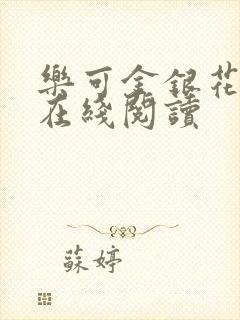 樂可金銀花
在綫閱讀
蘇婷